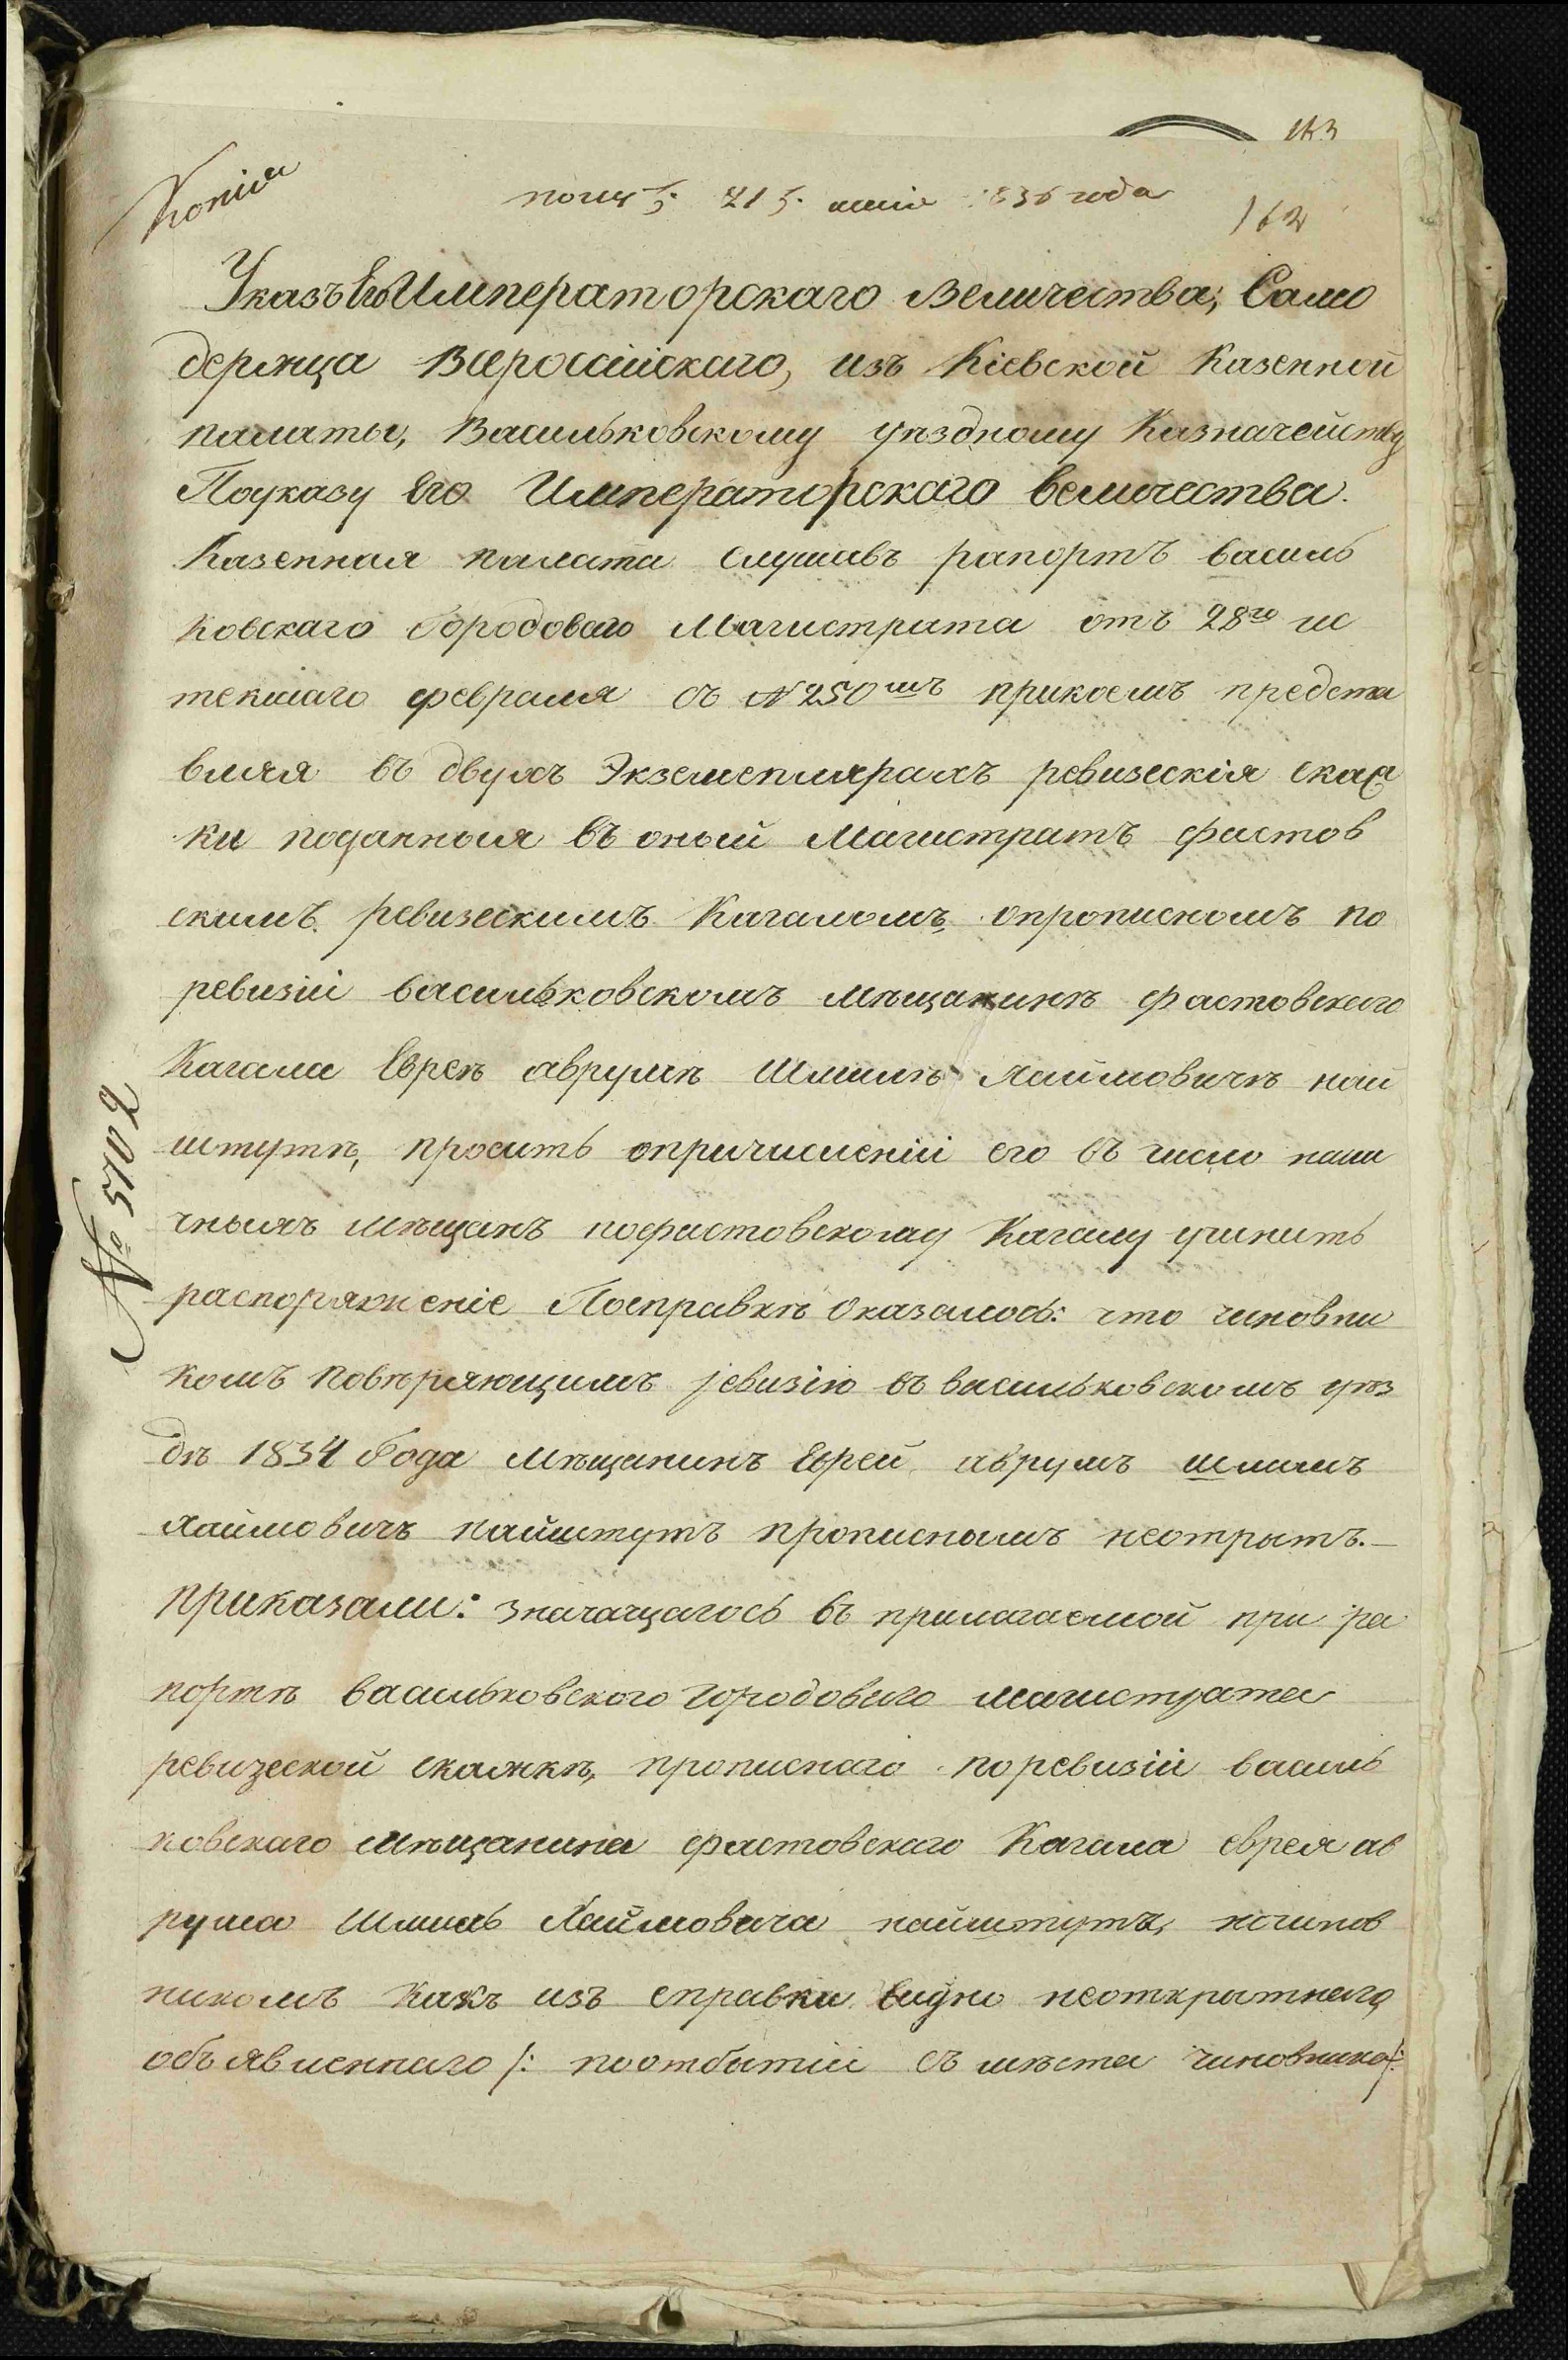 163
Копія
836 года
162
Указъ Его Императорскаго Величества, Само
держца Всеросійскаго, изъ Кіевской Казенной
палаты, Васильковскому уѣздному Казначейству
Поуказу Его Императорскаго величества.
Казенная палата слушавъ рапортъ василь
ковскаго Городоваго Магистрата отъ 28го ис
текшаго февраля съ №250мъ прикоемъ предста
вляя въ двухъ Экземплярахъ ревизскія сказ
ки поданныя въ оный Магистратъ фастов
скимъ ревизскимъ Кагаломъ, опрописномъ по
ревизіи васильковскомъ мѣщанинѣ фастовскаго
Кагала Евреѣ аврумѣ Шмилѣ Хаймовичѣ най
штутѣ, проситъ опричисленіи его въ число нали
чныхъ мѣщанъ пофастовскому Кагалу учинить
распоряженіе Посправкѣ Оказалось: что чиновни
комъ Повѣряющимъ ревизію въ васильковскомъ уѣз
дѣ 1834 Года мѣщанинъ Еврей аврумъ шмилъ
хаймовичъ найштутъ прописнымъ неотрытъ.—
приказали: значащагось въ прилагаемой при ра
портѣ васильковского городоваго магистрата
ревизской скажкѣ, прописнаго поревизіи василь
ковскаго мѣщанина фастовскаго Кагала еврея ав
рума Шмиль Хаймовича найштутъ, ночинов
никомъ какъ изъ справки видно неоткрытнаго
объявленнаго /: поотбытіи съ мѣста чиновника/:
№ 5702